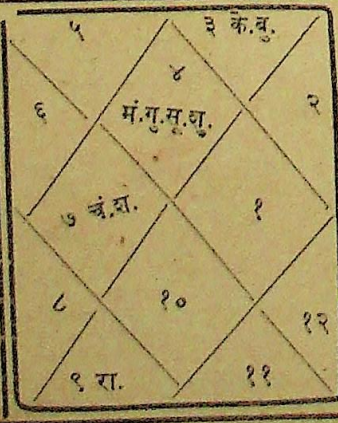 ५
३ के.बु.
४
६
२
मं.गु.सू.शु.
७ चं.श.
१
८
१०
१२
९ रा.
११